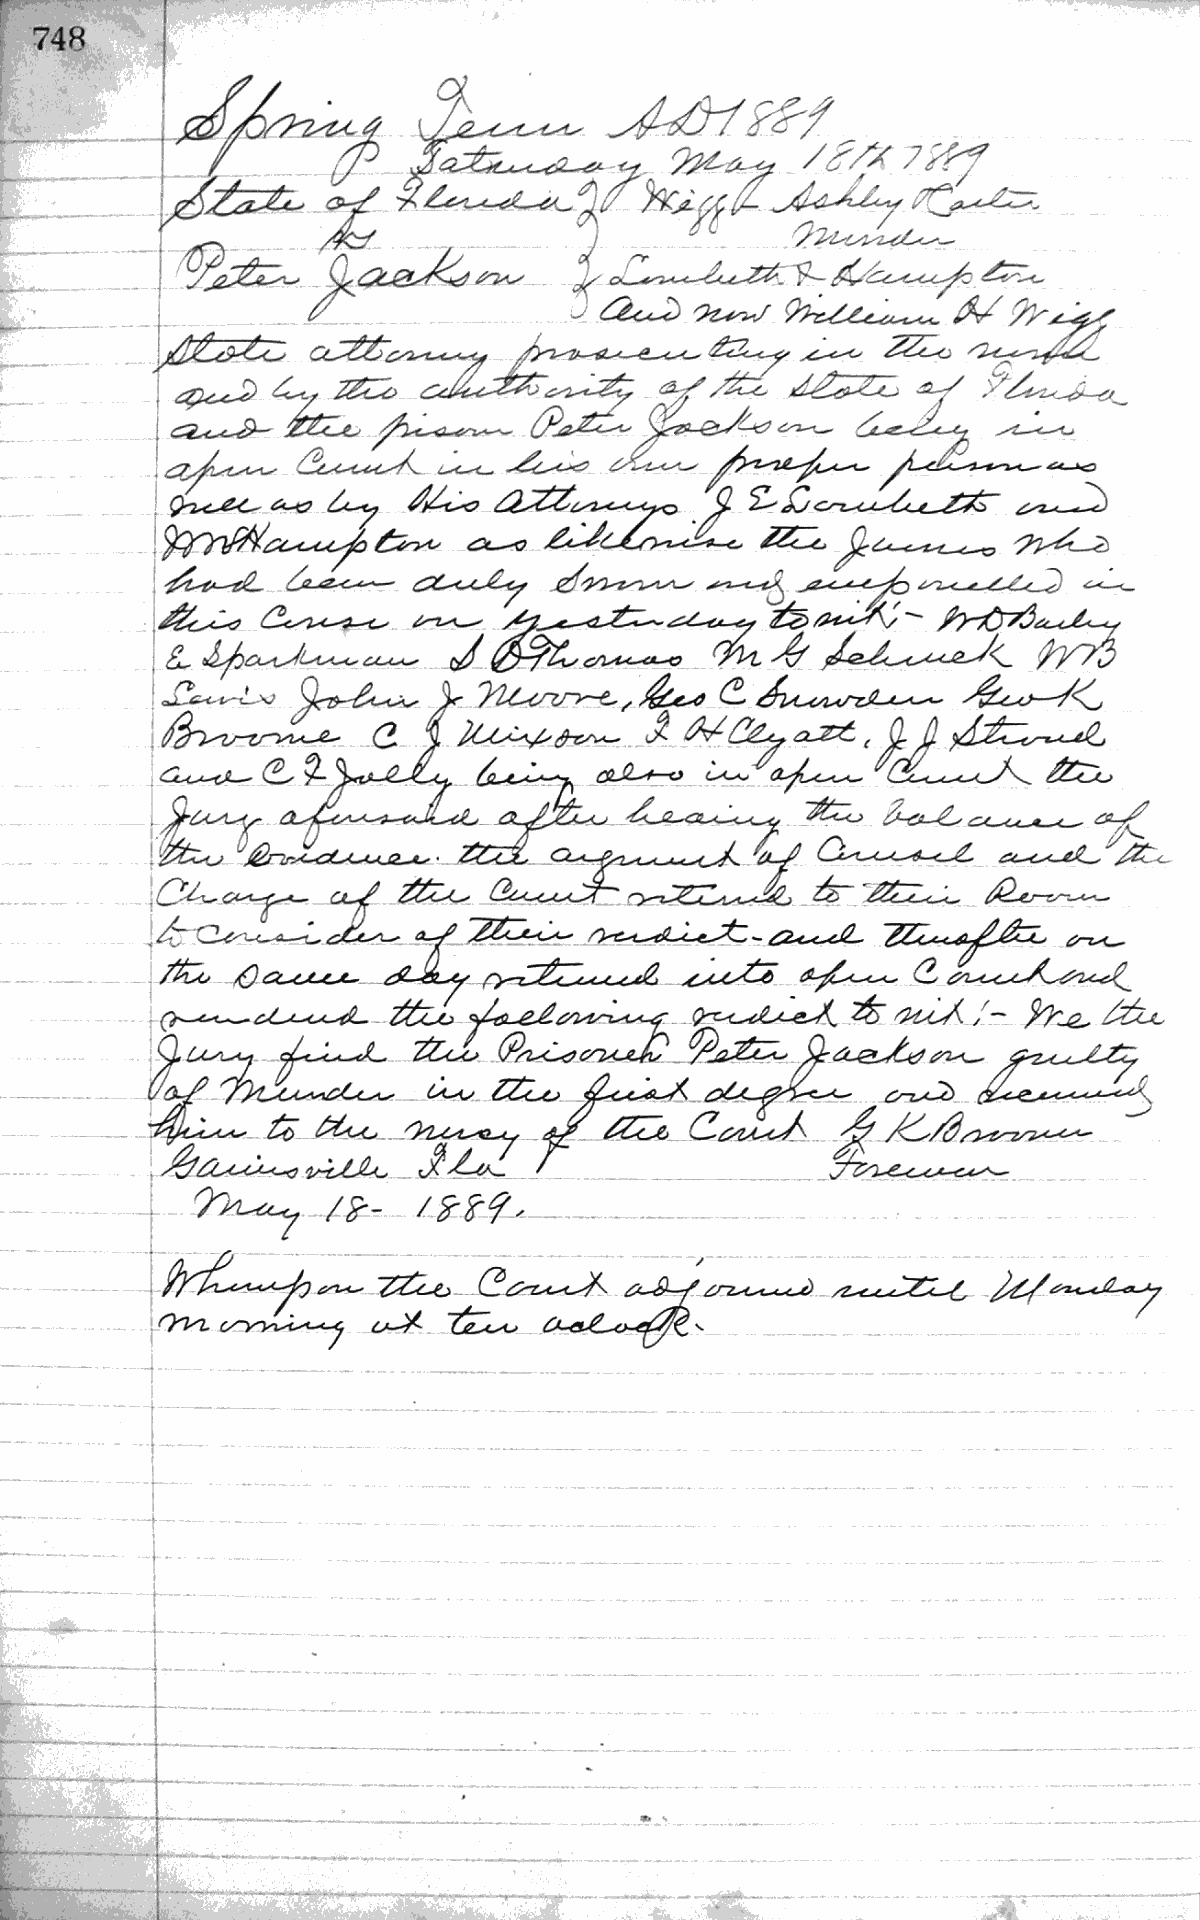 748
Spring Term AD 1889
Saturday May 18th 1889
State of Florida } Wigg Ashley Carter
vs } Murder
Peter Jackson } Lambeth & Hampton
And now William H Wigg
State attorney prosecuting in the name
and by the authority of the State of Florida
and the prisoner Peter Jackson being in
open Court in his own proper person as
well as by His Attorneys J E Lambeth and
WW Hampton as likewise the Jurors who
had been duly Sworn and empanelled in
this Cause on yesterday to wit:- WD Bailey
E Sparkman S D Thomas M G Schneck WB
Lewis John J Moore, Geo C Snowden Geo K
Broome C J Mixson F H Clyatt, J J Stroud
and C F Jolly being also in open Court the
Jury aforesaid after hearing the balance of
the Evidence. the argument of Counsel and the
Charge of the Court retired to their Room
to Consider of their verdict - and thereafter on
the same day returned into open Court and
rendered the following verdict to wit:- We the
Jury find the Prisoner Peter Jackson guilty
of Murder in the first degree and recommend
him to the mercy of the Court G K Broome
Gainesville Fla Foreman
May 18 - 1889.
Whereupon the Court adjourned until Monday
morning at ten oclock.